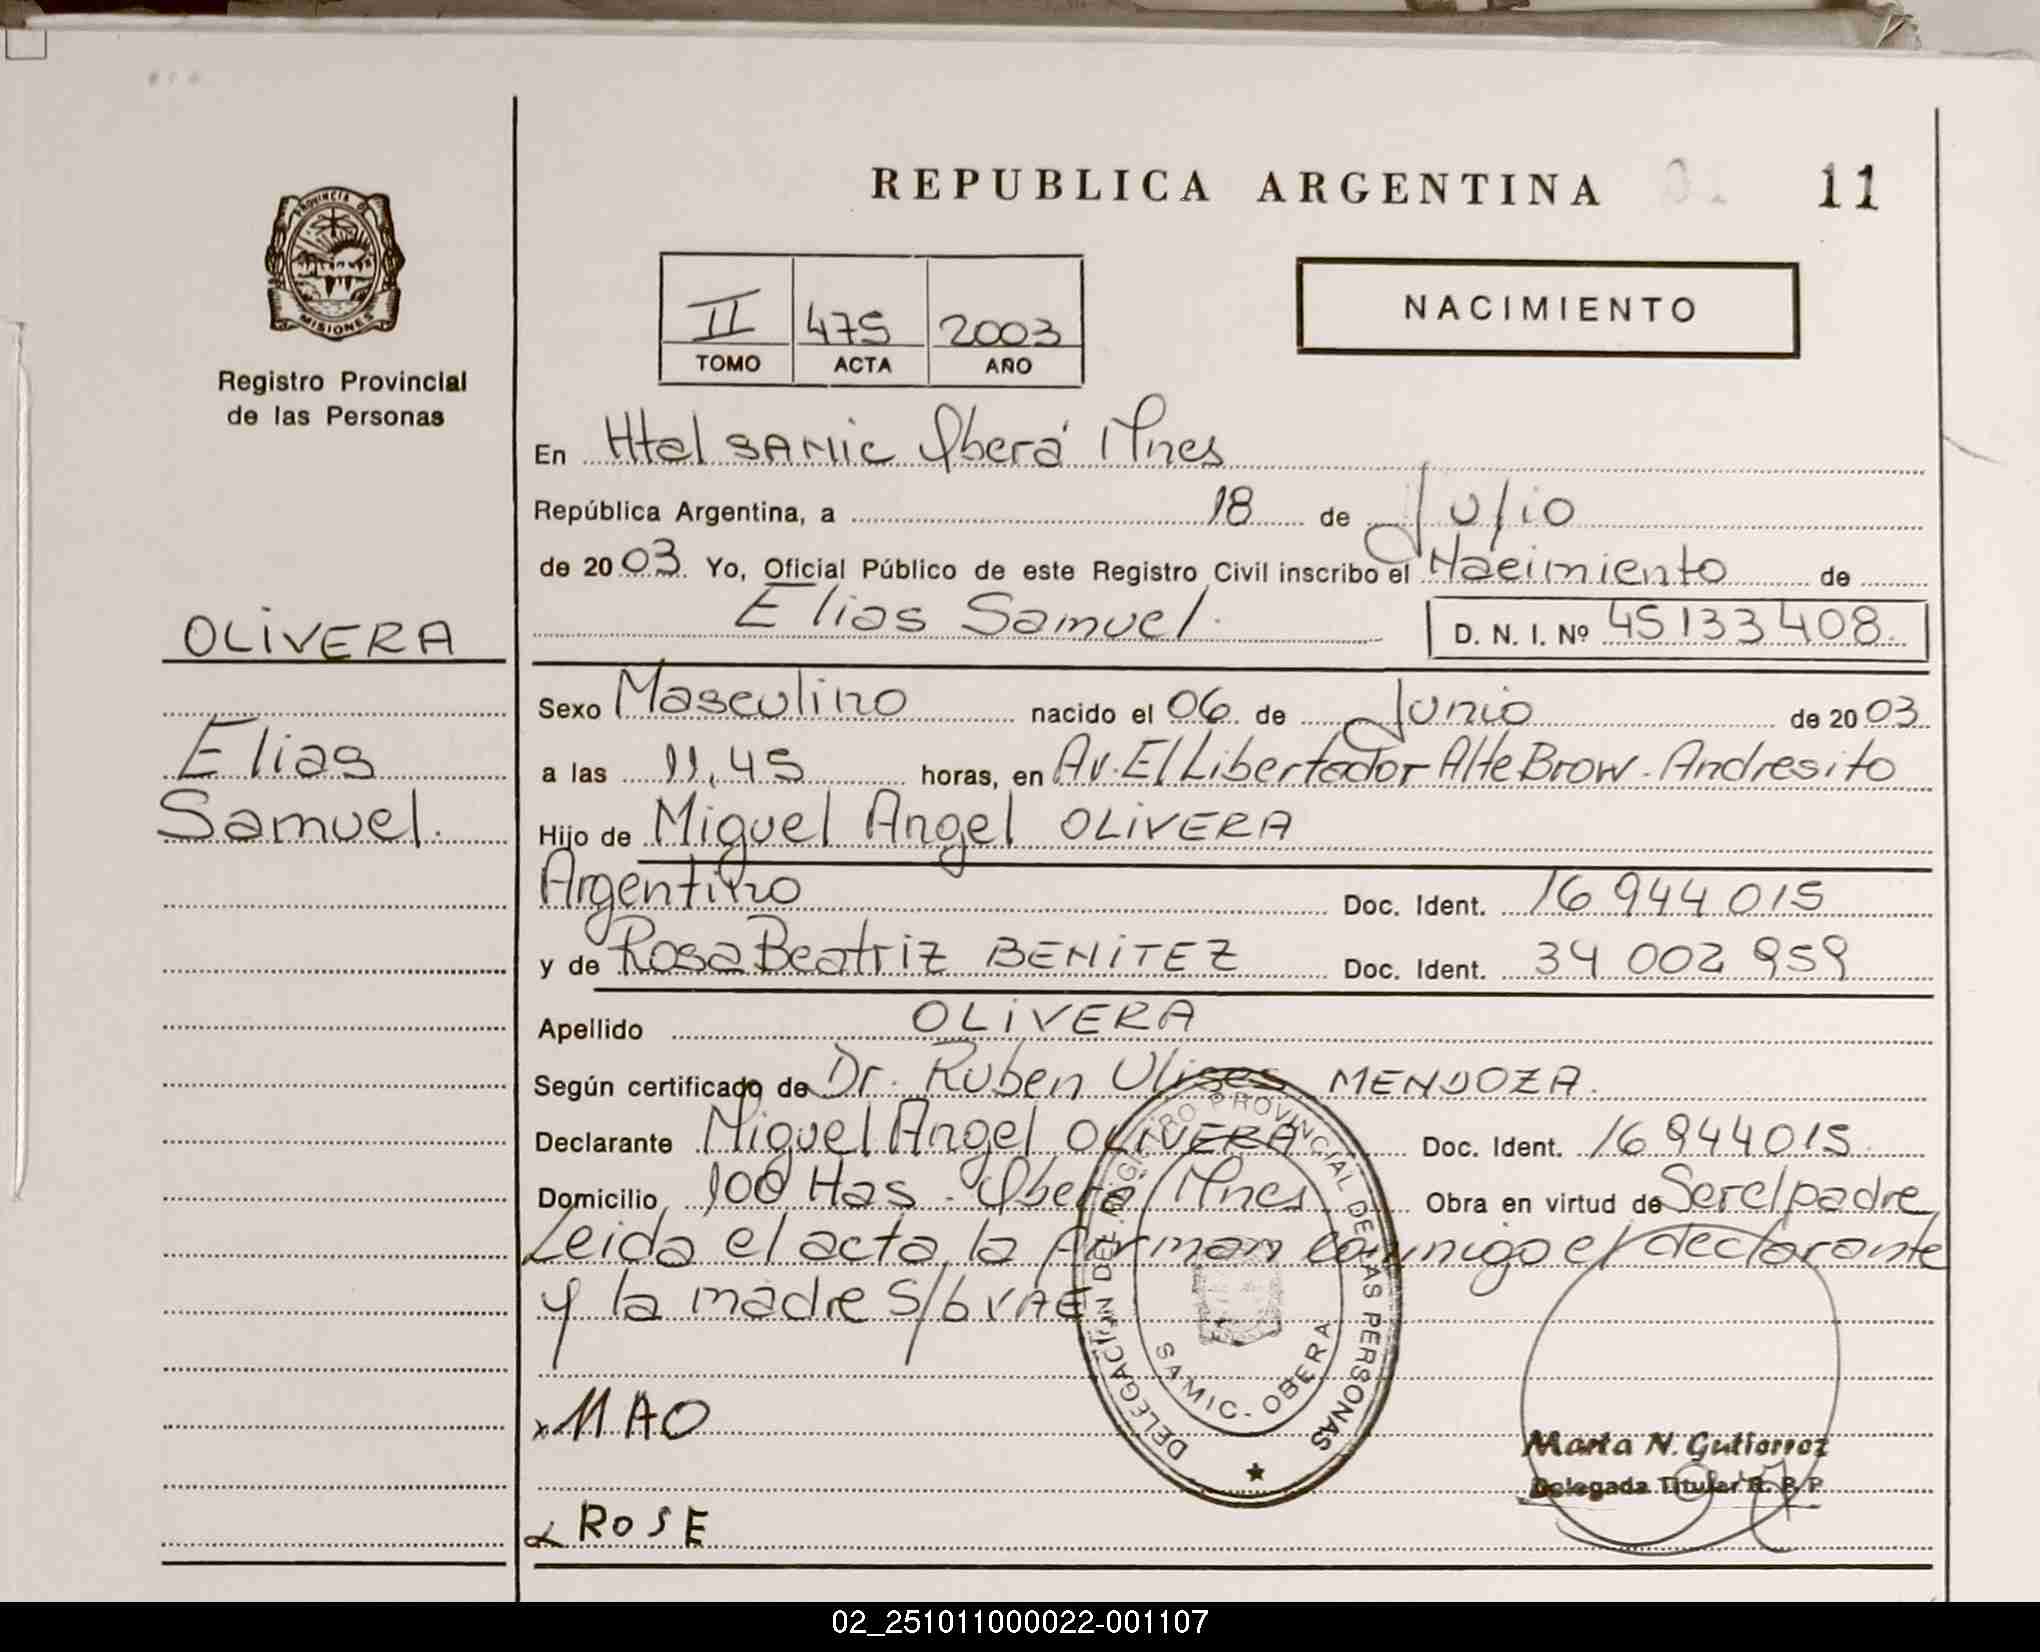 REPUBLICA ARGENTINA 11
PROVINCIA DE
MISIONES
Registro Provincial
de las Personas
II 475 2003
TOMO ACTA AÑO
NACIMIENTO
En Htal SAMIC Oberá Mnes
República Argentina, a 18 de Julio
de 2003 Yo, Oficial Público de este Registro Civil inscribo el Nacimiento de
Elias Samuel. D. N. I. Nº 45133408.
OLIVERA
Elias
Samuel.
Sexo Masculino nacido el 06 de Junio de 2003
a las 11,45 horas, en Av. El Libertador Alte Brow. Andresito
Hijo de Miguel Angel OLIVERA
Argentino Doc. Ident. 16 944 015
y de Rosa Beatriz BENITEZ Doc. Ident. 34 002 959
Apellido OLIVERA
Según certificado de Dr. Ruben Ulises MENDOZA.
Declarante Miguel Angel OLIVERA Doc. Ident. 16 944 015.
Domicilio 100 Has - Oberá Mnes Obra en virtud de Ser el padre,
Leida el acta, la firman conmigo el declarante
y la madre S/6
DELEGACION DEL REGISTRO PROVINCIAL DE LAS PERSONAS
SAMIC - OBERA
x MAO
Marta N. Gutierrez
Delegada Titular R. P. P.
ROSE
02_251011000022-001107